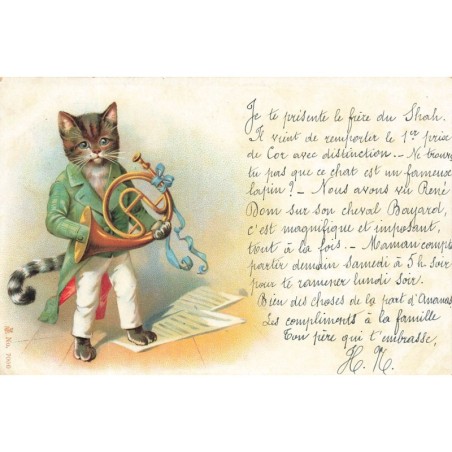 Je te présente le frère du Shah.
Il vient de remporter le 1er prix
de Cor avec distinction. — Ne trouves
tu pas que ce chat est un fameux
lapin? — Nous avons vu René
Dom sur son cheval Bayard,
c'est magnifique et imposant,
tout à la fois. — Maman compte
partir demain samedi à 5 h. soir
pour te ramener lundi soir.
Bien des choses de la part d'Ananas.
Les compliments à la famille
Ton père qui t'embrasse,
H. N.
No. 7006